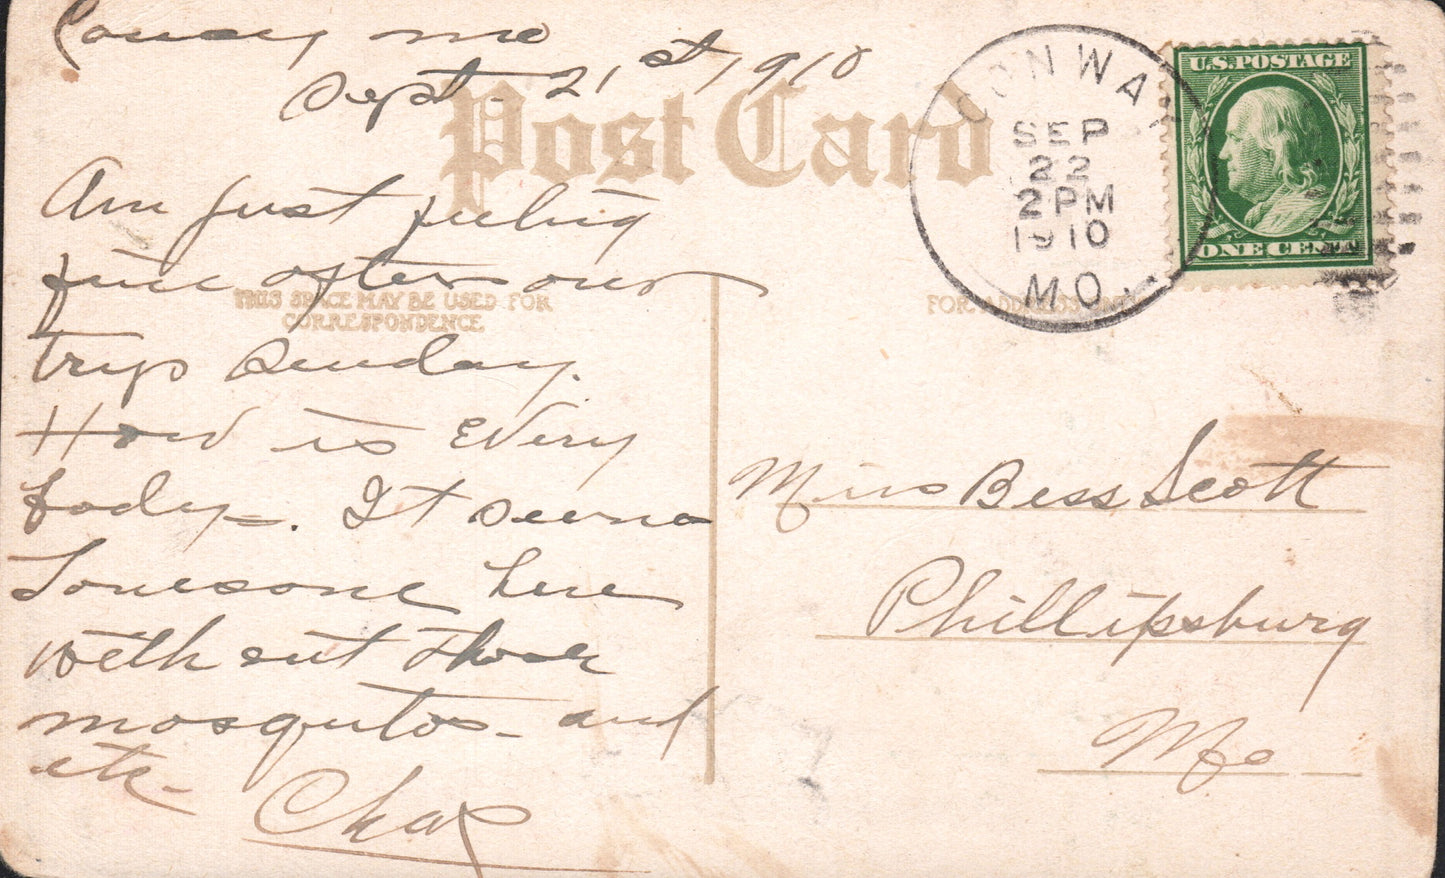 Conway Mo
Sept. 21st, 1910
Post Card
Am just feeling
fine after our
THIS SPACE MAY BE USED FOR
CORRESPONDENCE
trip Sunday.
How is Every
body. It seems
Lonesome here
with out those
mosquitos and
etc
Chas
CONWAY
SEP
22
2 PM
1910
MO.
U.S. POSTAGE
ONE CENT
FOR ADDRESS ONLY
Miss Bess Scott
Phillipsburg
Mo